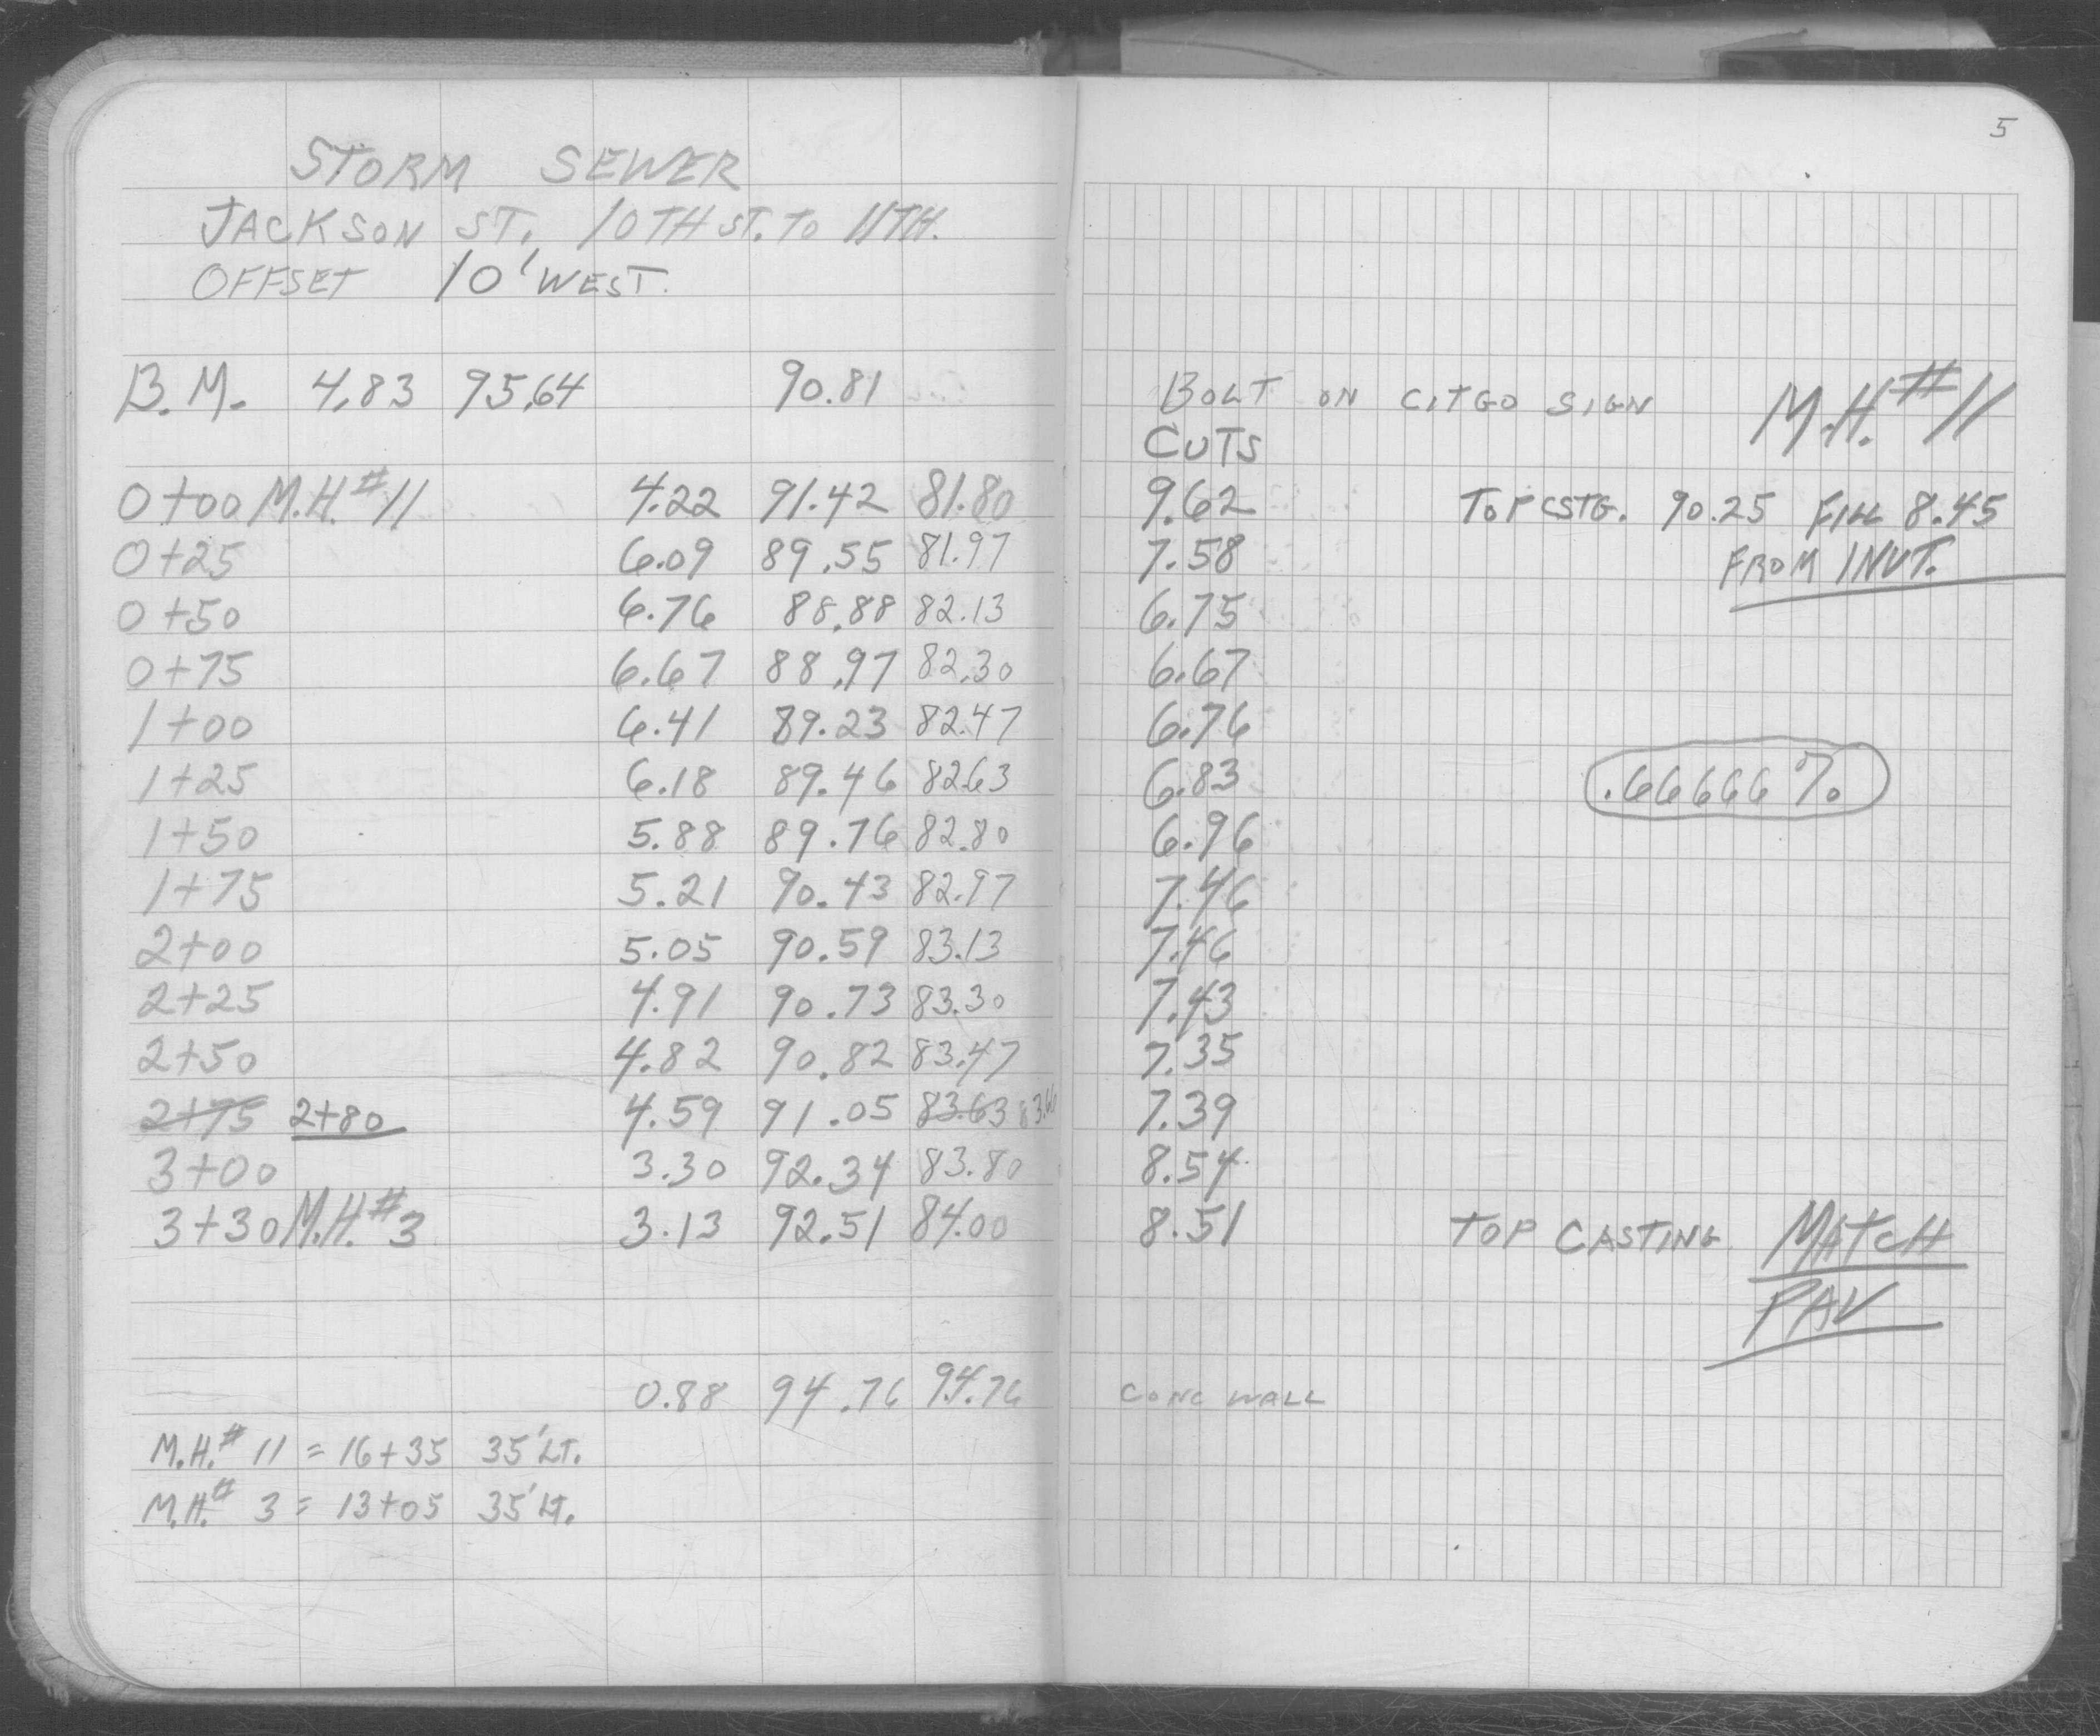 5
STORM SEWER
JACKSON ST. 10TH ST. TO 11TH.
OFFSET 10' WEST.
B.M. 4.83 95.64 90.81 BOLT ON CITGO SIGN M.H.#11
CUTS
0+00 M.H.#11 4.22 91.42 81.80 9.62 TOP CSTG. 90.25 FILL 8.45
0+25 6.09 89.55 81.97 7.58 FROM INVT.
0+50 6.76 88.88 82.13 6.75
0+75 6.67 88.97 82.30 6.67
1+00 6.41 89.23 82.47 6.76
1+25 6.18 89.46 82.63 6.83 .66666%
1+50 5.88 89.76 82.80 6.96
1+75 5.21 90.43 82.97 7.46
2+00 5.05 90.59 83.13 7.46
2+25 4.91 90.73 83.30 7.43
2+50 4.82 90.82 83.47 7.35
2+75 2+80 4.59 91.05 83.63 83.66 7.39
3+00 3.30 92.34 83.80 8.54
3+30 M.H.#3 3.13 92.51 84.00 8.51 TOP CASTING MATCH
PAV
0.88 94.76 94.76 CONC WALL
M.H.# 11 = 16+35 35' LT.
M.H.# 3 = 13+05 35' LT.